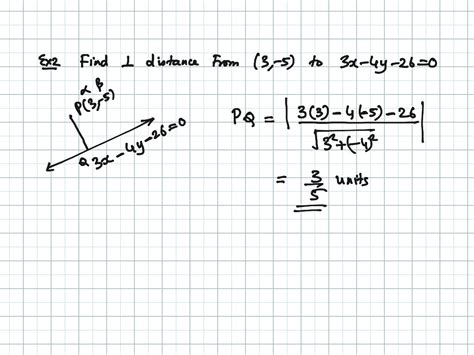 Ex2 Find ⊥ distance from (3,-5) to 3x-4y-26=0
α β
P(3,-5)
Q 3x-4y-26=0
PQ = | 3(3)-4(-5)-26 / √3²+(-4)² |
= 3/5 units